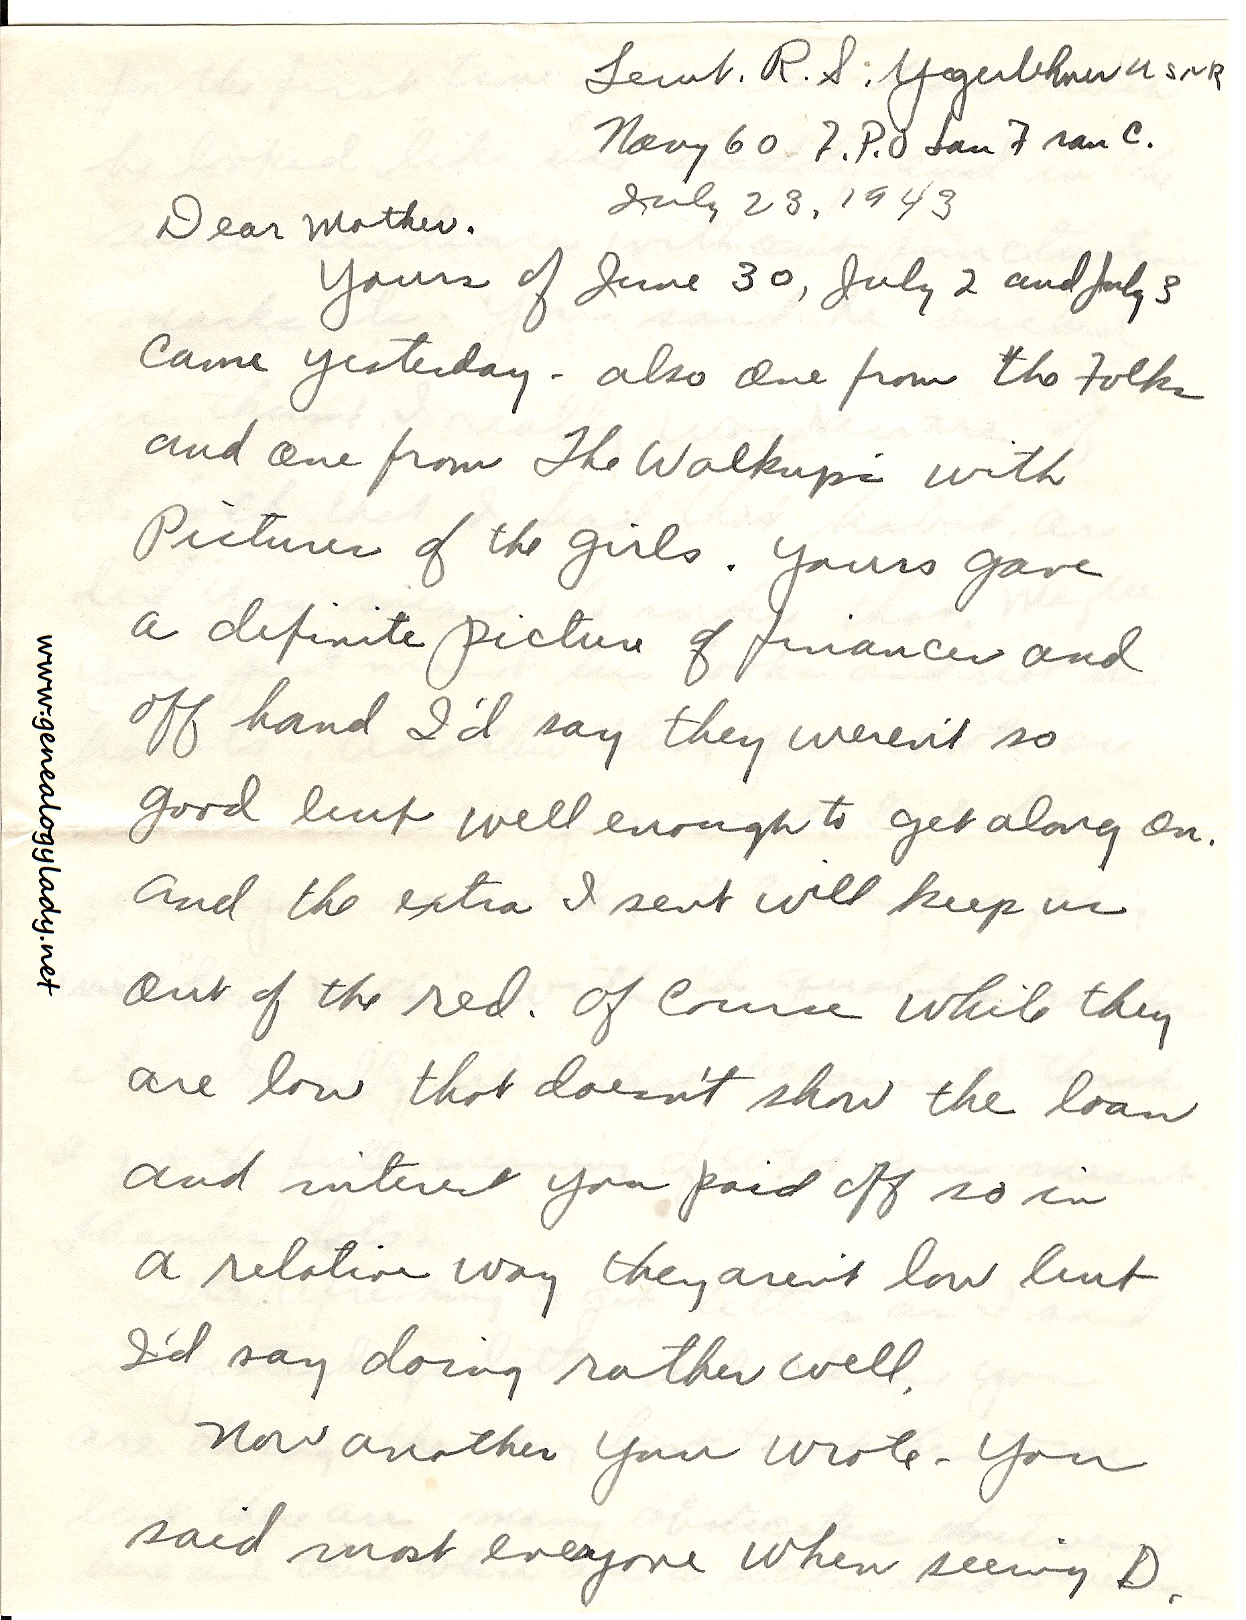 Lieut. R. S. Yegerlehner USNR
Navy 60 F.P.O San Fran C.
July 23, 1943
Dear Mother.
Yours of June 30, July 2 and July 3
came yesterday - also one from the Folks
and one from The Walkups with
Pictures of the girls. Yours gave
a definite picture of finances and
off hand I'd say they weren't so
good but well enough to get along on.
And the extra I sent will keep us
out of the red. Of course while they
are low that doesn't show the loan
and interest you paid off so in
a relative way they aren't low but
I'd say doing rather well.
Now another you wrote - You
said most everyone when seeing D.
www.genealogylady.net